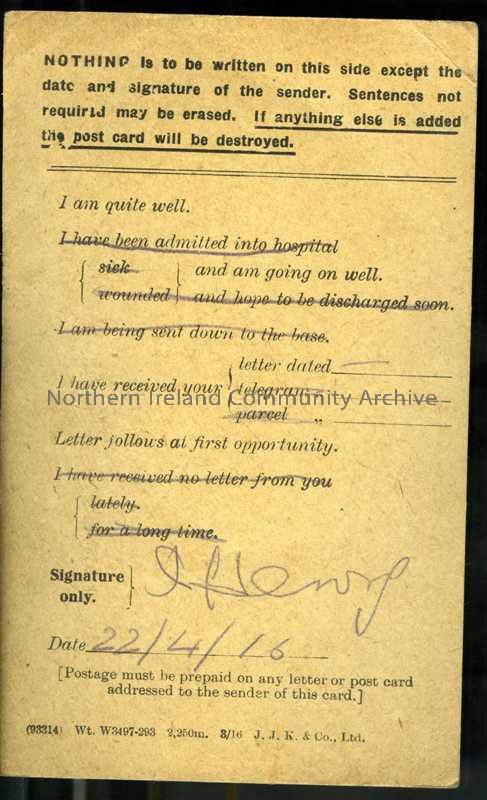 NOTHING is to be written on this side except the
date and signature of the sender. Sentences not
required may be erased. If anything else is added
the post card will be destroyed.
I am quite well.
I have been admitted into hospital
sick and am going on well.
wounded and hope to be discharged soon.
I am being sent down to the base.
letter dated
I have received your telegram „
parcel „
Northern Ireland Community Archive
Letter follows at first opportunity.
I have received no letter from you
lately.
for a long time.
Signature
only.
Date 22/4/16
[Postage must be prepaid on any letter or post card
addressed to the sender of this card.]
(93314) Wt. W3497-293 2,250m. 3/16 J. J. K. & Co., Ltd.